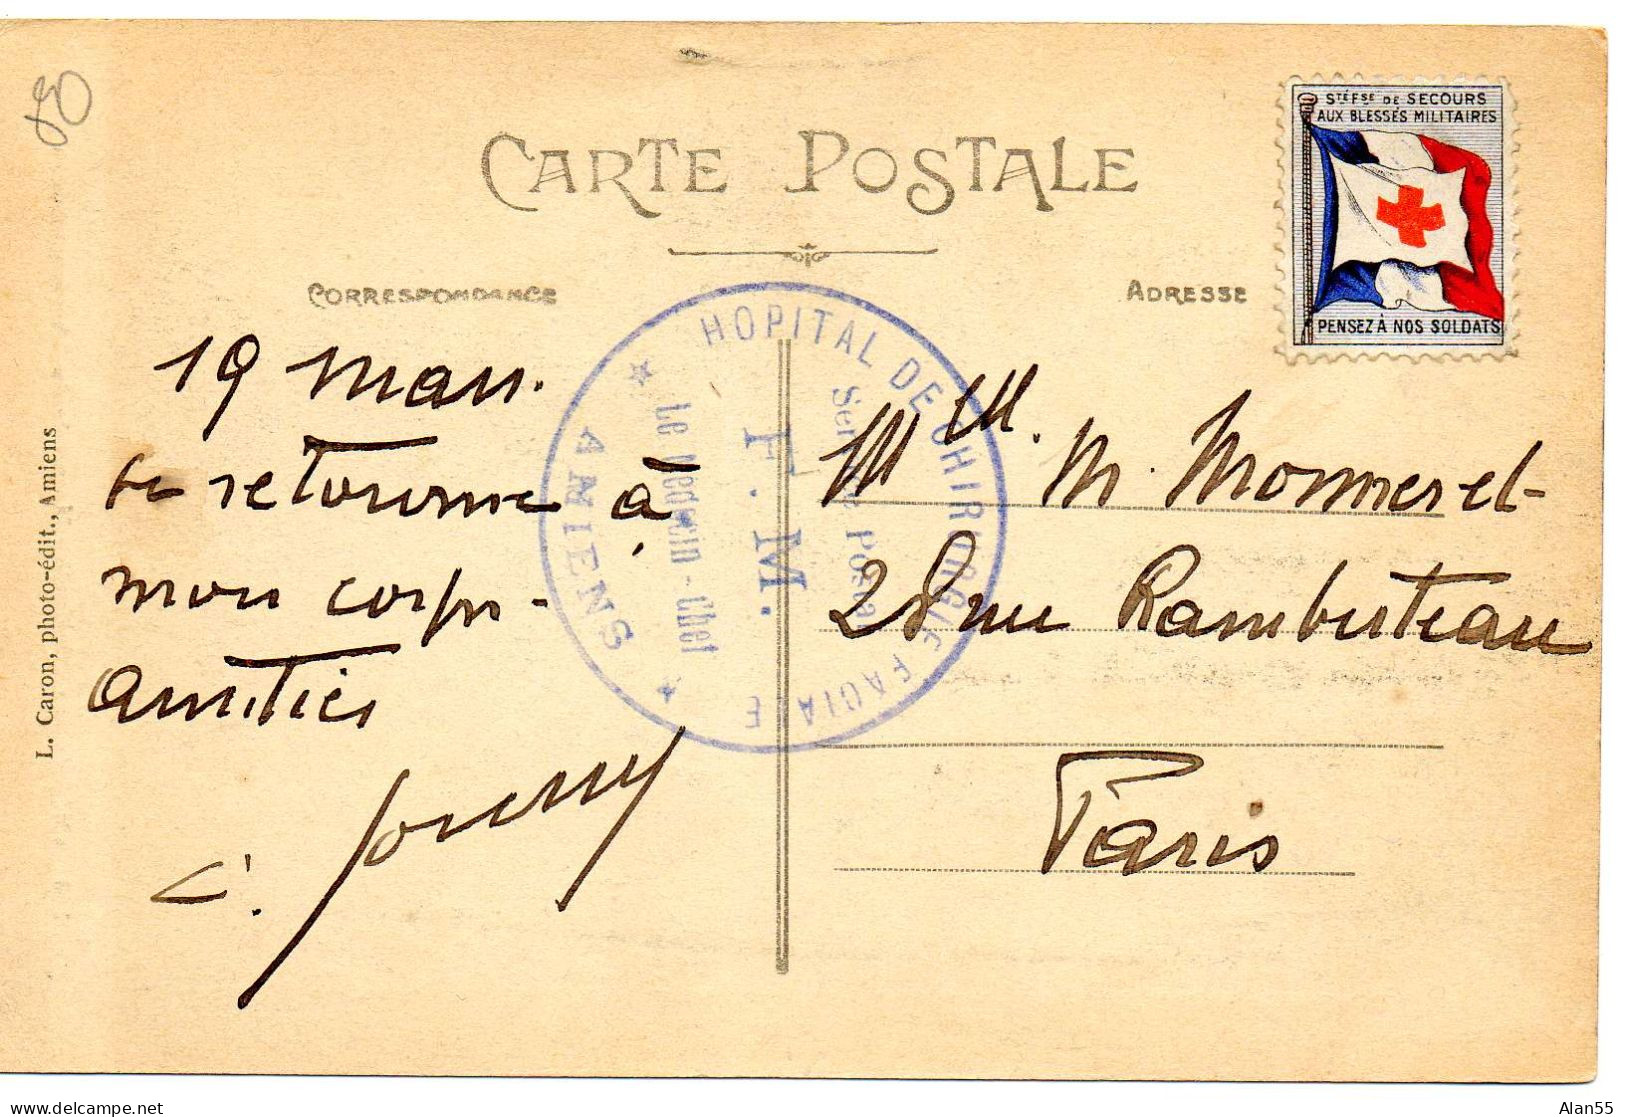 80
CARTE POSTALE
STÉ FSE DE SECOURS
AUX BLESSÉS MILITAIRES
PENSEZ À NOS SOLDATS
CORRESPONDANCE
ADRESSE
HOPITAL DE CHIRURGIE FACIALE
Service Postal
F. M.
Le Médecin-Chef
AMIENS
19 mars.
retourne à
mon corps.
Amitiés
M. Monneret
28 rue Rambuteau
Paris
L. Caron, photo-édit., Amiens
delcampe.net
Alan55